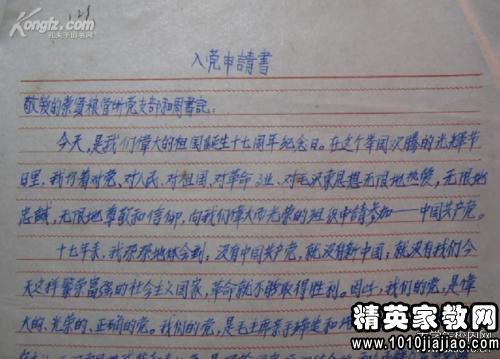 Kongfz.com
孔夫子旧书网
入党申請書
敬爱的 党支部和周書記:
今天,是我们偉大的祖国誕生十七周年纪念日。在这个举国沉腾的光輝节
日里,我怀着对党、对人民、对祖国、对革命事业、对毛泽东思想无限地热爱,无限地
忠誠,无限地尊敬和信仰,向我们偉大而光荣的组织申請参加——中国共产党。
十七年来,我深深地体会到:没有中国共产党,就没有新中国;就没有我们今
天这样繁荣富强的社会主义国家,革命就不能取得胜利。因此,我们的党,是偉
大的、光荣的、正确的党。我们的党,是毛主席亲手缔造和
精英家教网
www.1010jiajiao.com